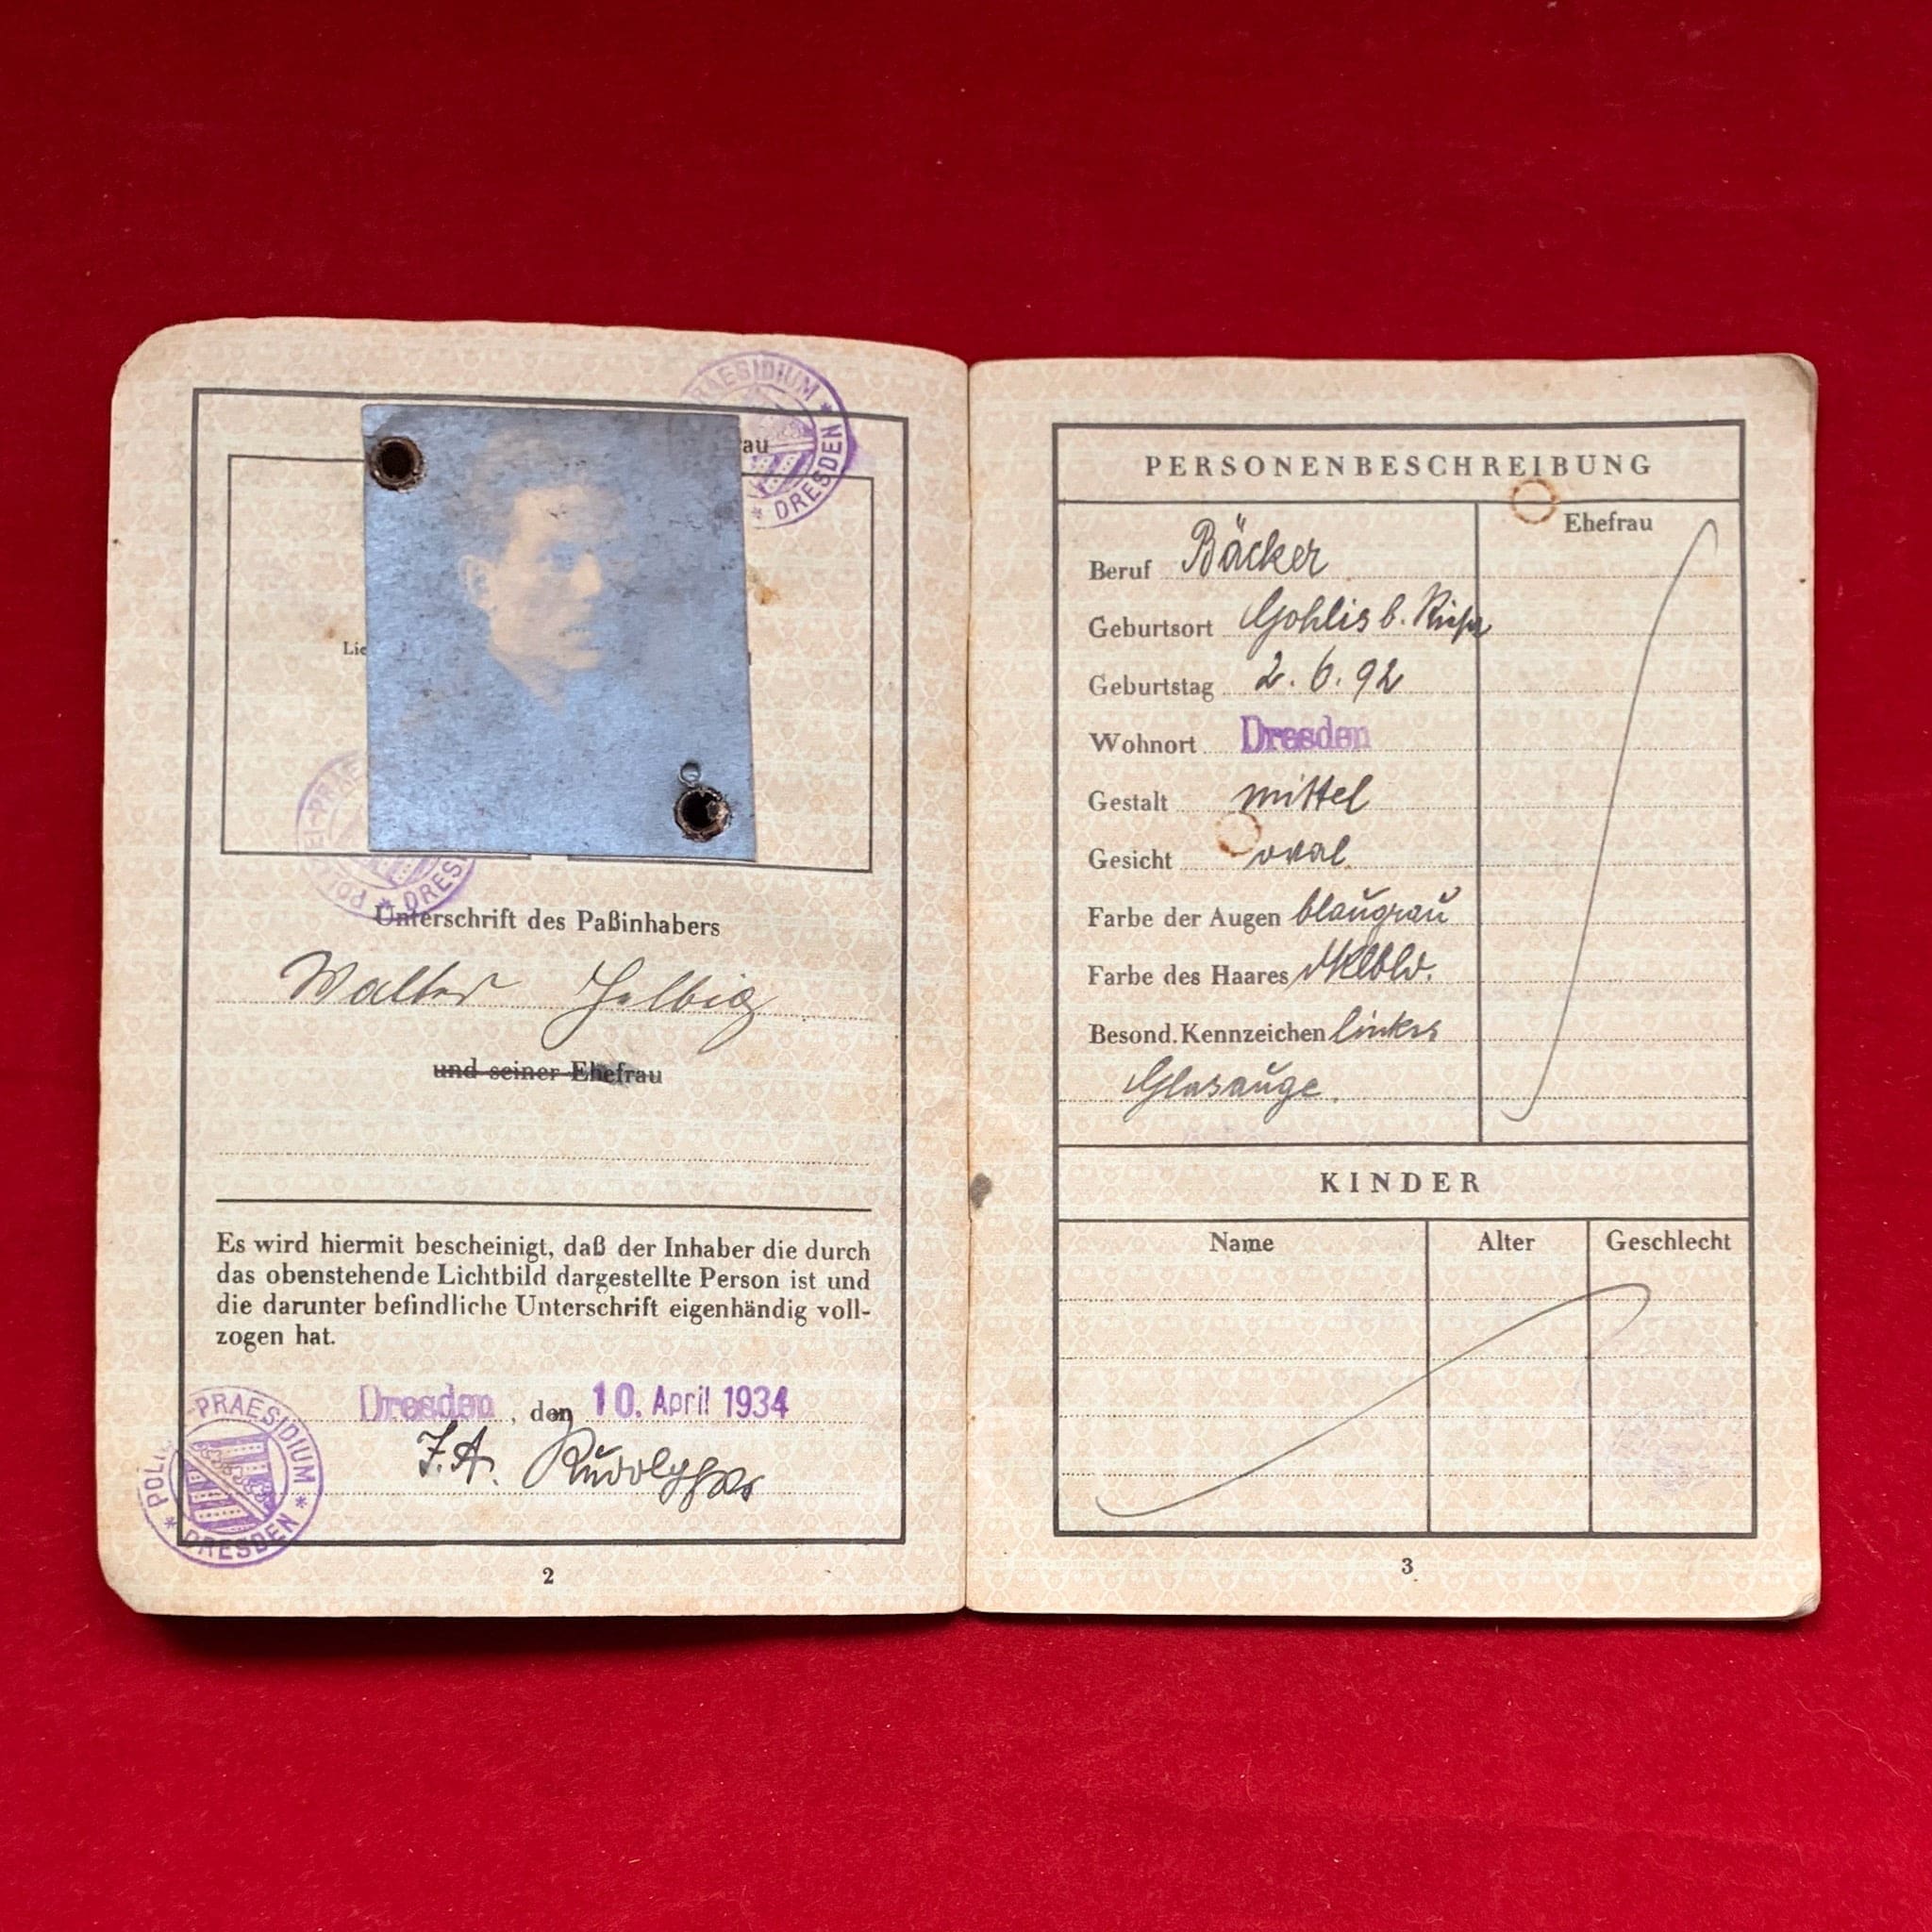 PRAESIDIUM * DRESDEN *
au
Lie
POLIZEI-PRAE * DRES
Unterschrift des Paßinhabers
Walter Helbig
und seiner Ehefrau
Es wird hiermit bescheinigt, daß der Inhaber die durch
das obenstehende Lichtbild dargestellte Person ist und
die darunter befindliche Unterschrift eigenhändig voll-
zogen hat.
Dresden, den 10. April 1934
PRAESIDIUM * DRESDEN *
2
PERSONENBESCHREIBUNG
Ehefrau
Beruf Bäcker
Geburtsort Gohlis b. Riesa
Geburtstag 2.6.92
Wohnort Dresden
Gestalt mittel
Gesicht oval
Farbe der Augen blaugrau
Farbe des Haares dklbld.
Besond. Kennzeichen linkes
Glasauge.
KINDER
Name Alter Geschlecht
3